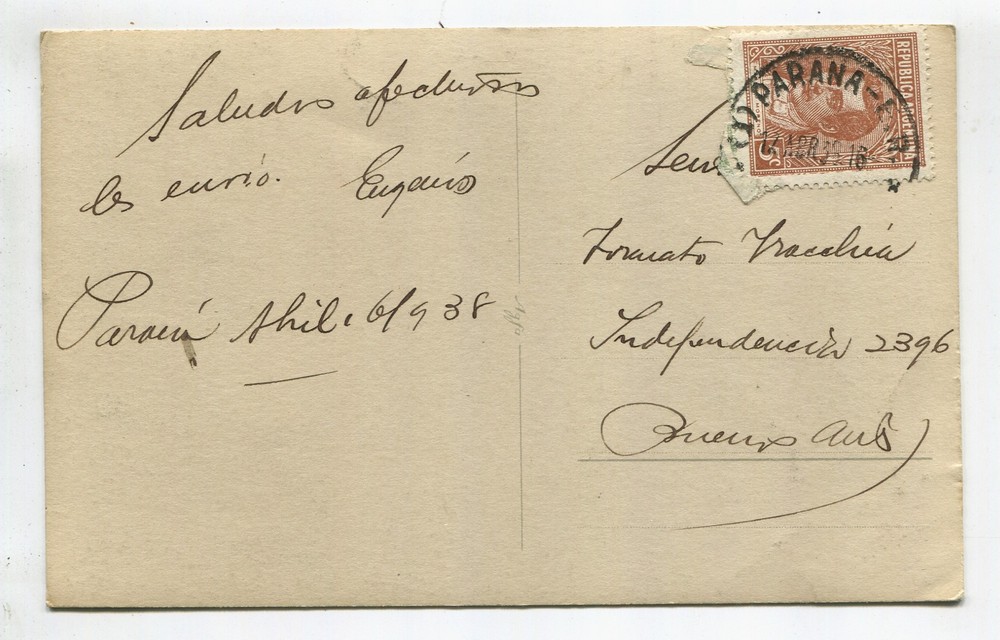 Saludos afectuosos
les envió. Eugenio
Paraná Abril, 6/938
REPUBLICA ARGENTINA
5 c
(1) PARANA - E. R.
ABR 38 18
Independencia 2396
Buenos Aires